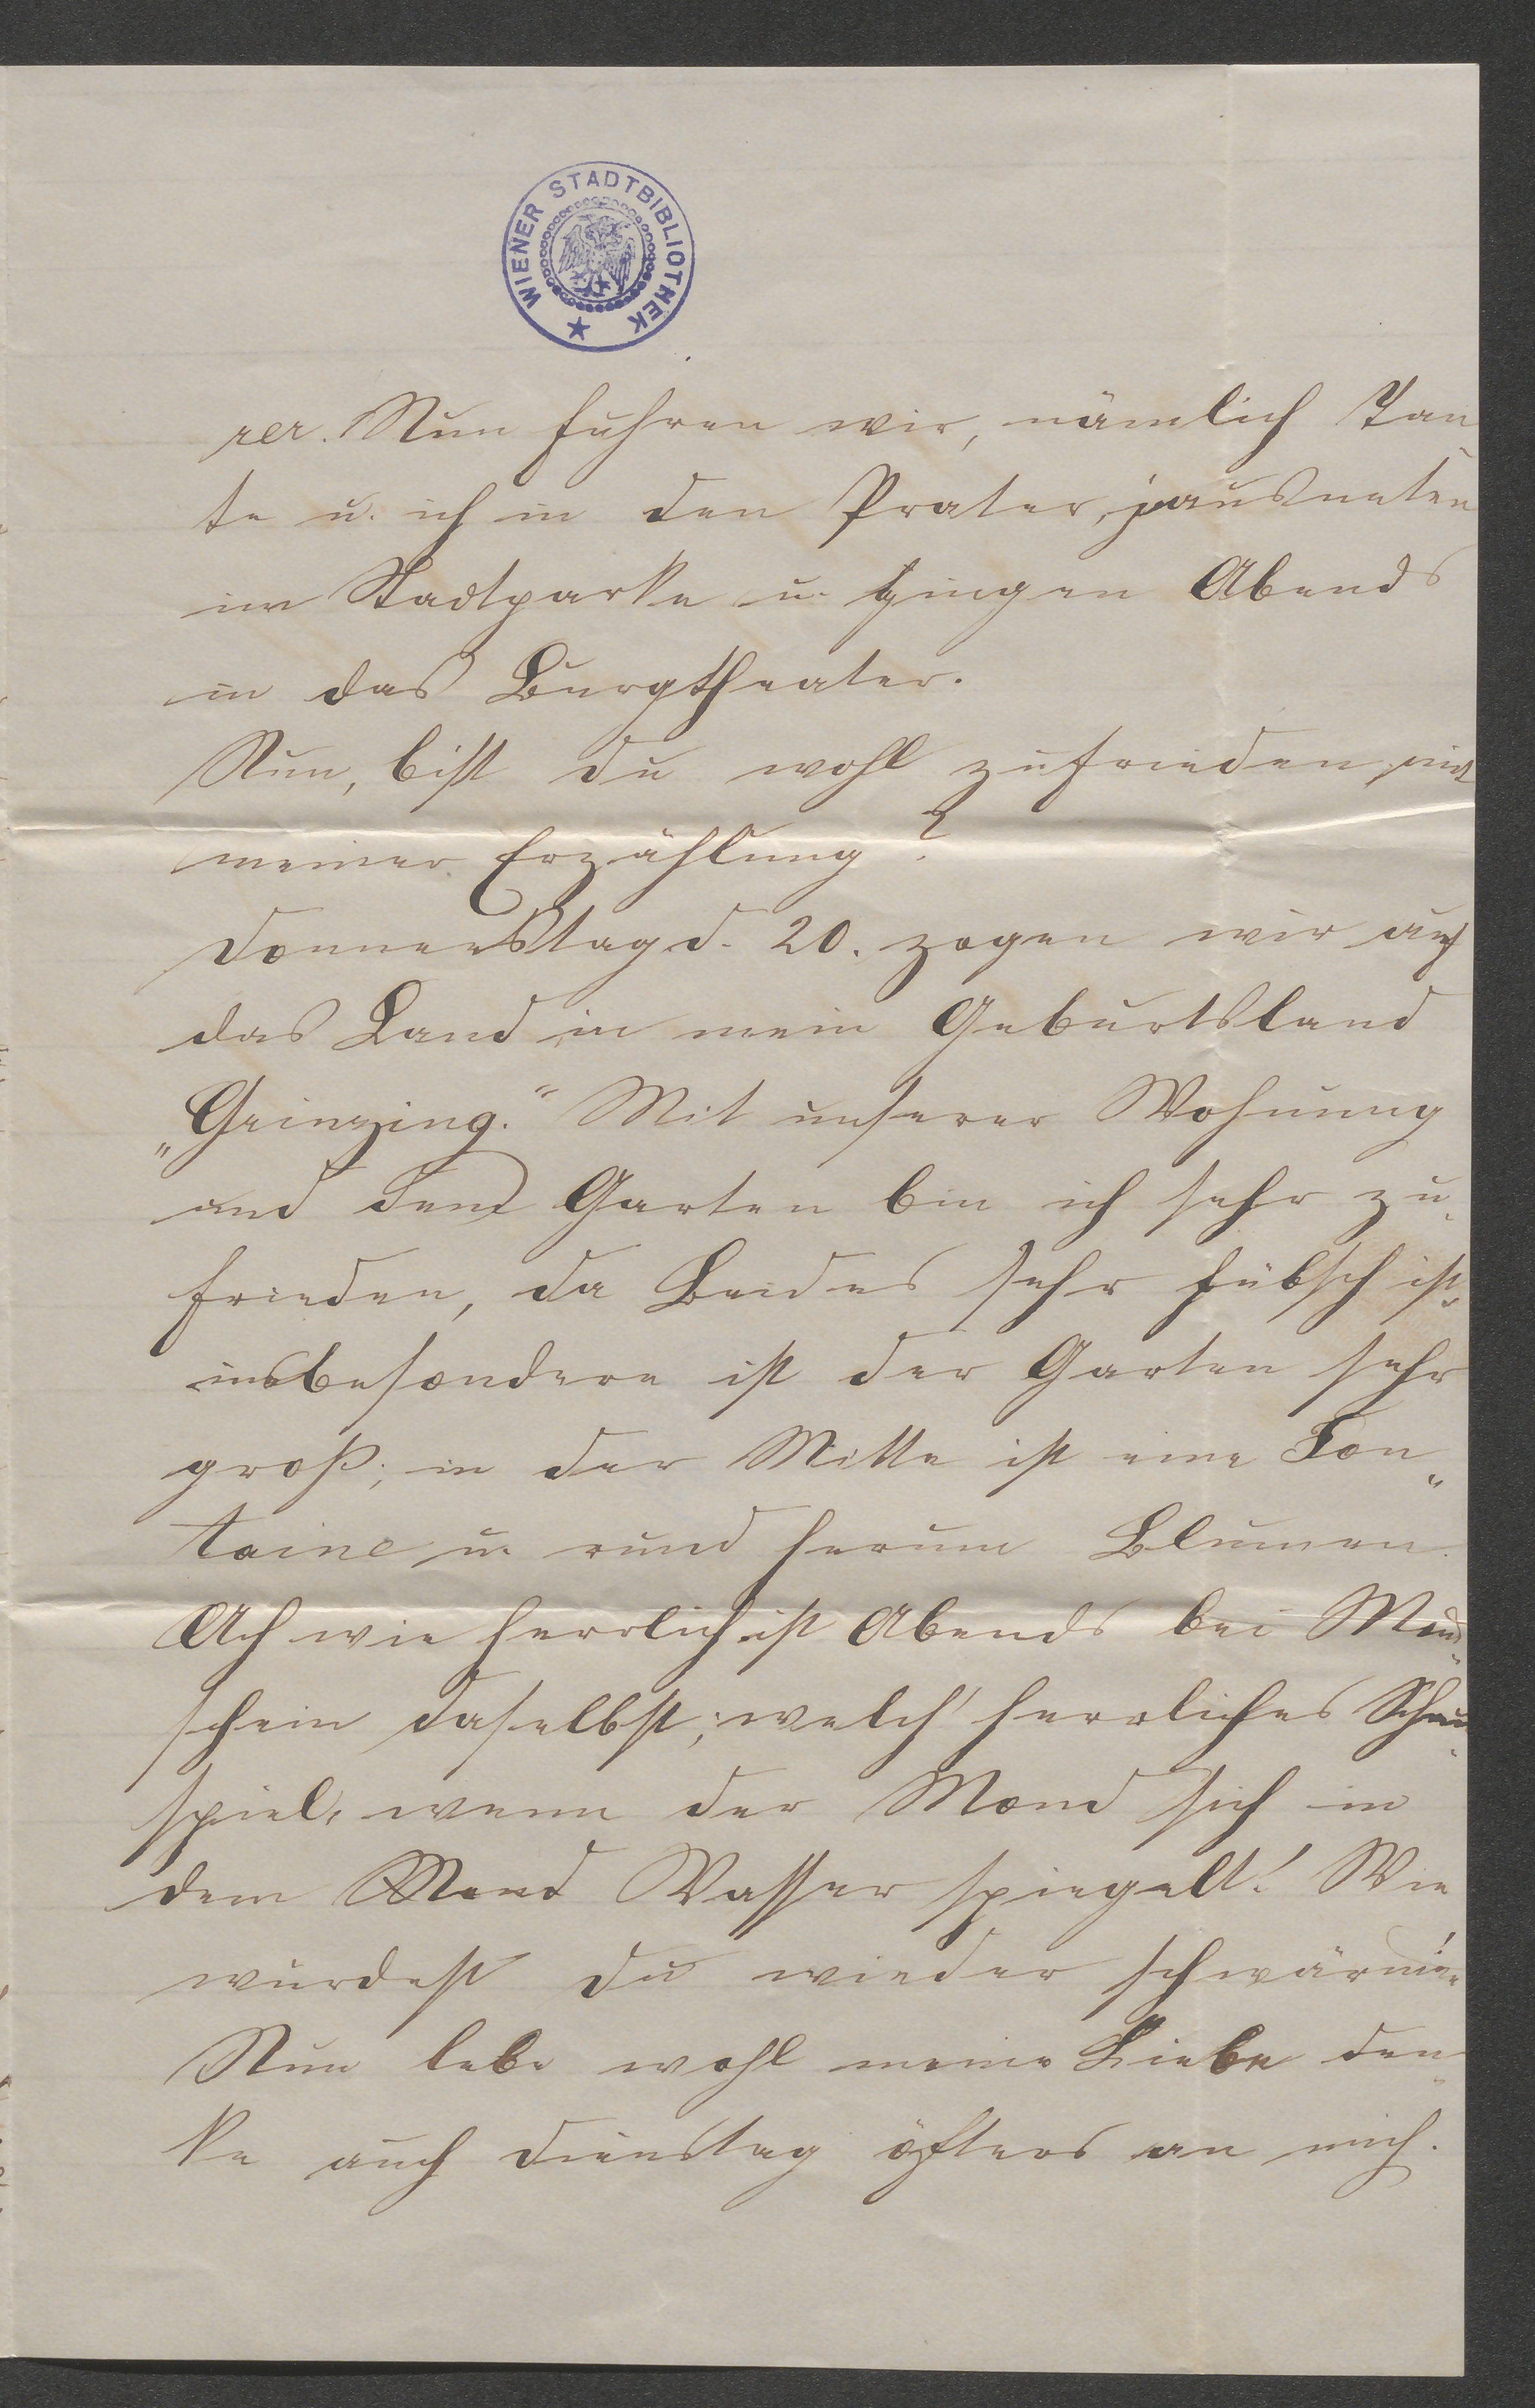 WIENER STADTBIBLIOTHEK
rer. Nun fuhren wir, nämlich Tan-
te u. ich in den Prater, jausneten
im Stadtparke u. gingen Abends
in das Burgtheater.
Nun, bist du wohl zufrieden mit
meiner Erzählung?
Donnerstag d. 20. zogen wir auf
das Land in mein Geburtsland
„Grinzing.“ Mit unserer Wohnung
und dem Garten bin ich sehr zu-
frieden, da Beides sehr hübsch ist,
insbesondere ist der Garten sehr
groß; in der Mitte ist eine Fon„
taine u. rund herum Blumen.
Ach wie herrlich ist Abends bei Mond„
schein daselbst; welch' herrliches Schau„
spiel, wenn der Mond sich in
dem Mond Wasser spiegelt! Wie
würdest du wieder schwärmen!
Nun lebe wohl meine Liebe den-
ke auch Dienstag öfters an mich.